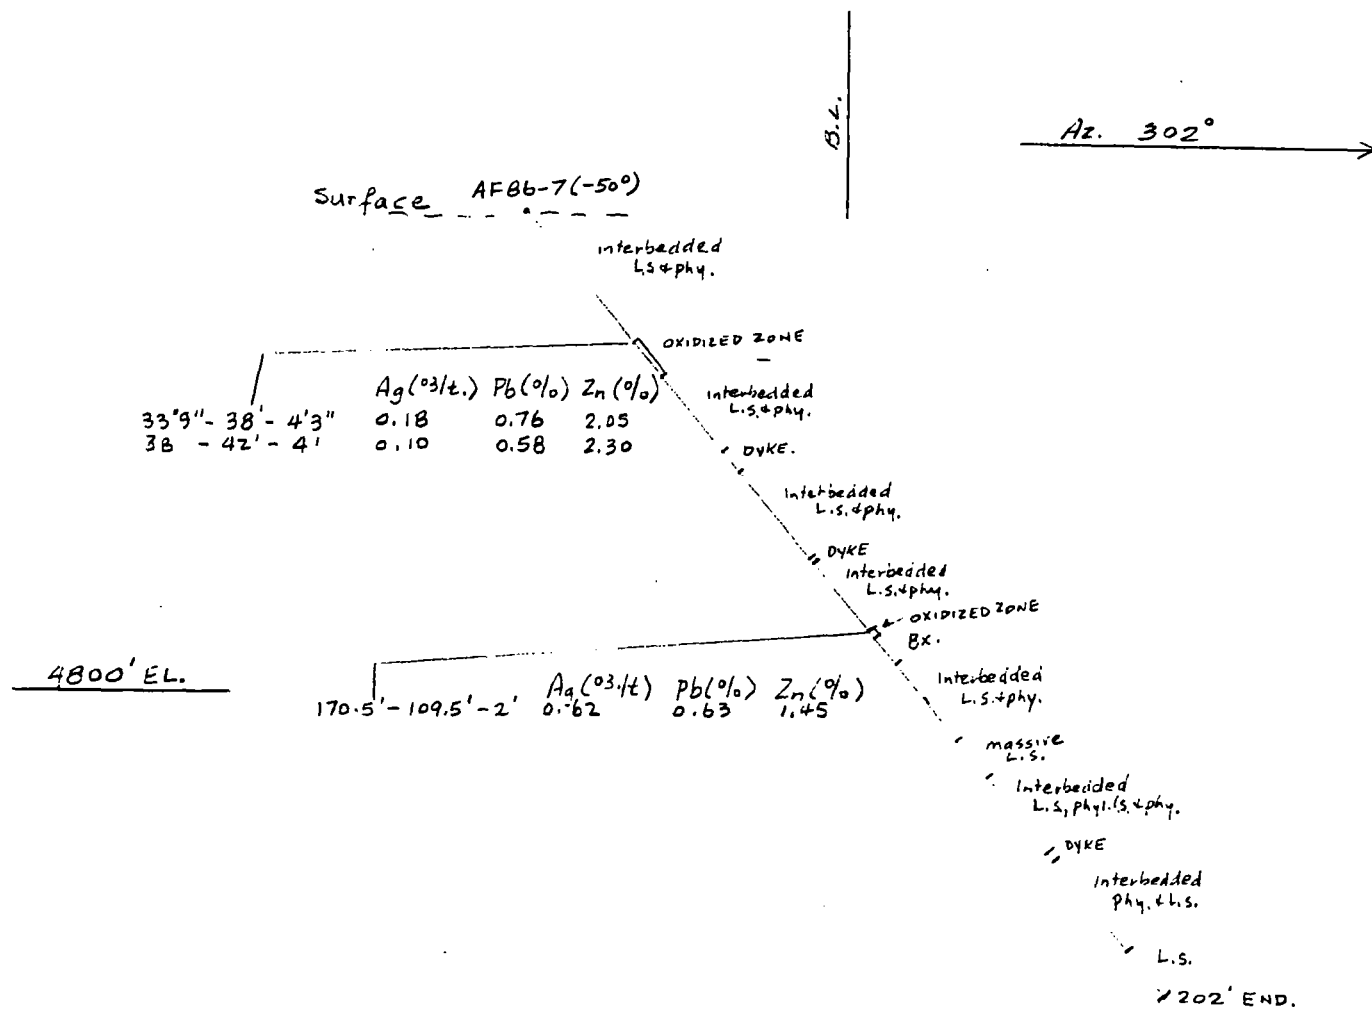 B.L.
Az. 302°
Surface AF86-7(-50°)
Interbedded
L.S & phy.
OXIDIZED ZONE
Ag (oz/t.) Pb (%) Zn (%)
33'9" - 38' - 4'3" 0.18 0.76 2.05
38 - 42' - 4' 0.10 0.58 2.30
Interbedded
L.S. & phy.
DYKE.
Interbedded
L.S. & phy.
DYKE
Interbedded
L.S. & phy.
OXIDIZED ZONE
Bx.
4800' EL.
Ag (oz./t) Pb (%) Zn (%)
170.5' - 109.5' - 2' 0.62 0.63 1.45
Interbedded
L.S. & phy.
massive
L.S.
Interbedded
L.S, phyl. & phy.
DYKE
Interbedded
Phy. & L.S.
L.S.
202' END.